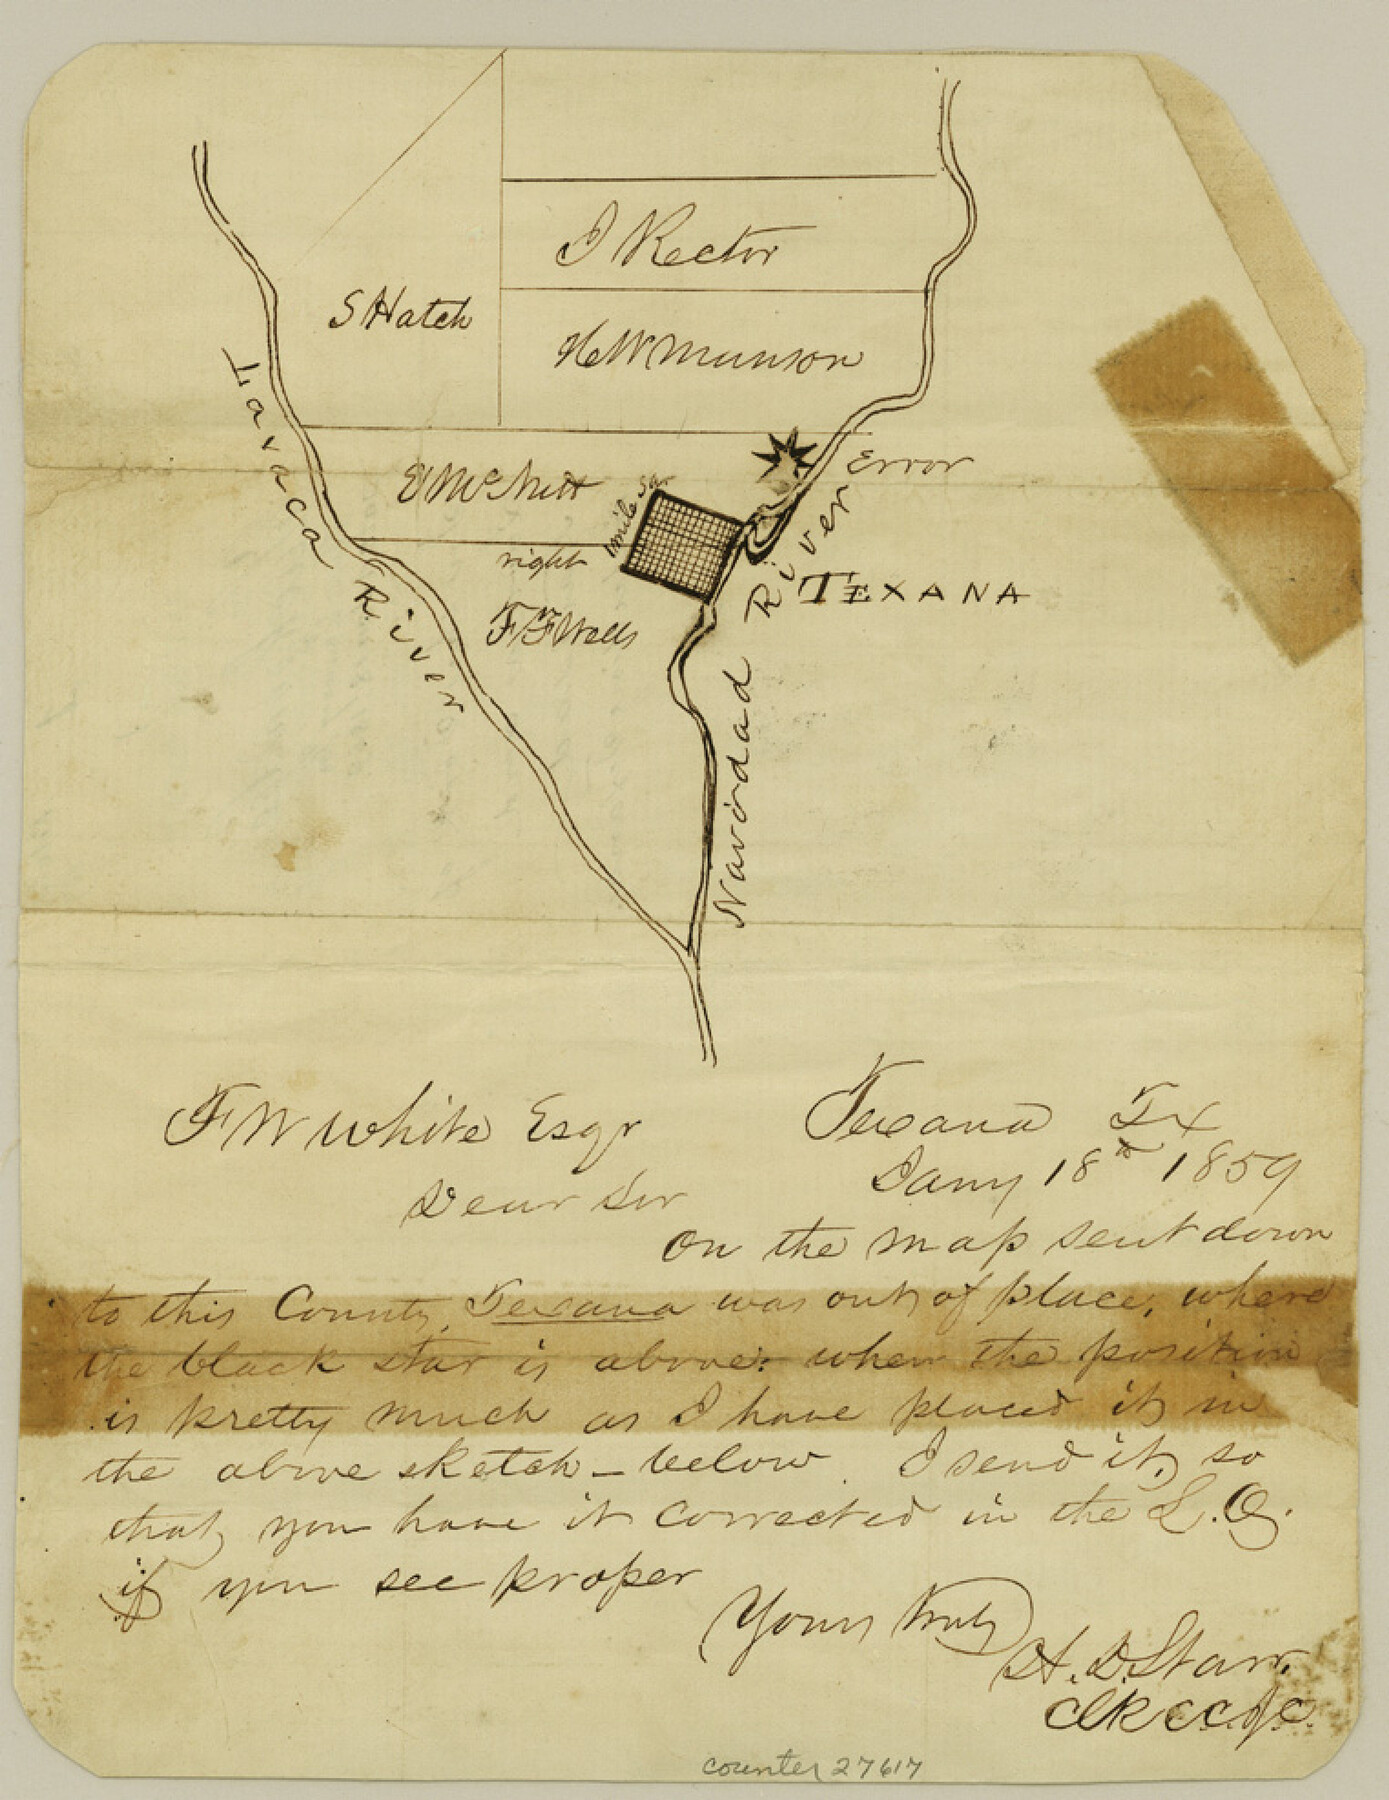 J Rector
S Hatch
H W Munson
Lavaca River
E McNutt
Error
1 mile Sq.
right
TEXANA
F F Wells
Navidad River
F W White Esqr
Texana Tx
Jany 18th 1859
Dear Sir
On the map sent down
to this County, Texana was out of place, where
the black star is above: when the position
is pretty much as I have placed it in
the above sketch - below. I send it, so
that you have it corrected in the L.O.
if you see proper
Yours Truly
H. D. Starr.
Clk C C J C.
counter 27617